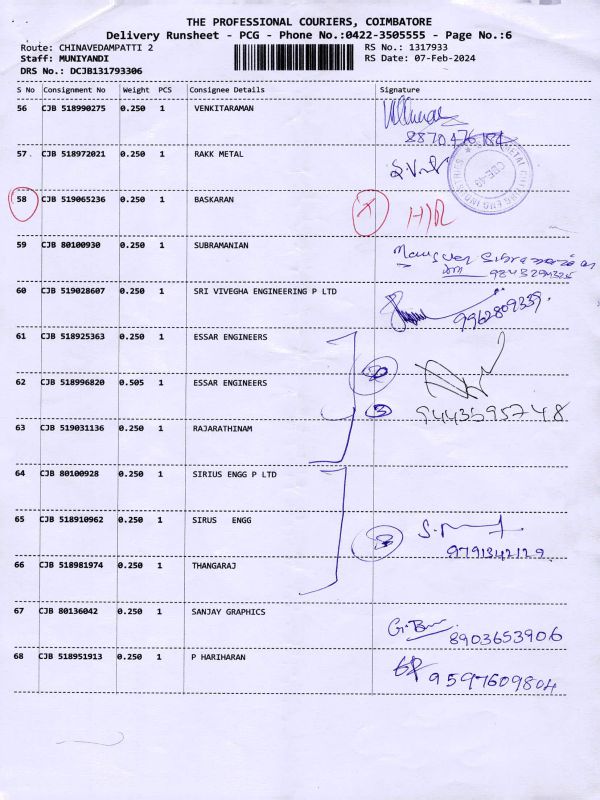 THE PROFESSIONAL COURIERS, COIMBATORE
Delivery Runsheet - PCG - Phone No.:0422-3505555 - Page No.:6
Route: CHINAVEDAMPATTI 2 RS No.: 1317933
Staff: MUNIYANDI RS Date: 07-Feb-2024
DRS No.: DCJB131793306
S No Consignment No Weight PCS Consignee Details Signature
56 CJB 518990275 0.250 1 VENKITARAMAN
8870476184
57 CJB 518972021 0.250 1 RAKK METAL
58 CJB 519065236 0.250 1 BASKARAN H/R
59 CJB 80100930 0.250 1 SUBRAMANIAN
60 CJB 519028607 0.250 1 SRI VIVEGHA ENGINEERING P LTD
9962809339
61 CJB 518925363 0.250 1 ESSAR ENGINEERS
62 CJB 518996820 0.505 1 ESSAR ENGINEERS
3 9443595748
63 CJB 519031136 0.250 1 RAJARATHINAM
64 CJB 80100928 0.250 1 SIRIUS ENGG P LTD
65 CJB 518910962 0.250 1 SIRUS ENGG
9791342129
66 CJB 518981974 0.250 1 THANGARAJ
67 CJB 80136042 0.250 1 SANJAY GRAPHICS
8903653906
68 CJB 518951913 0.250 1 P HARIHARAN
9597609804